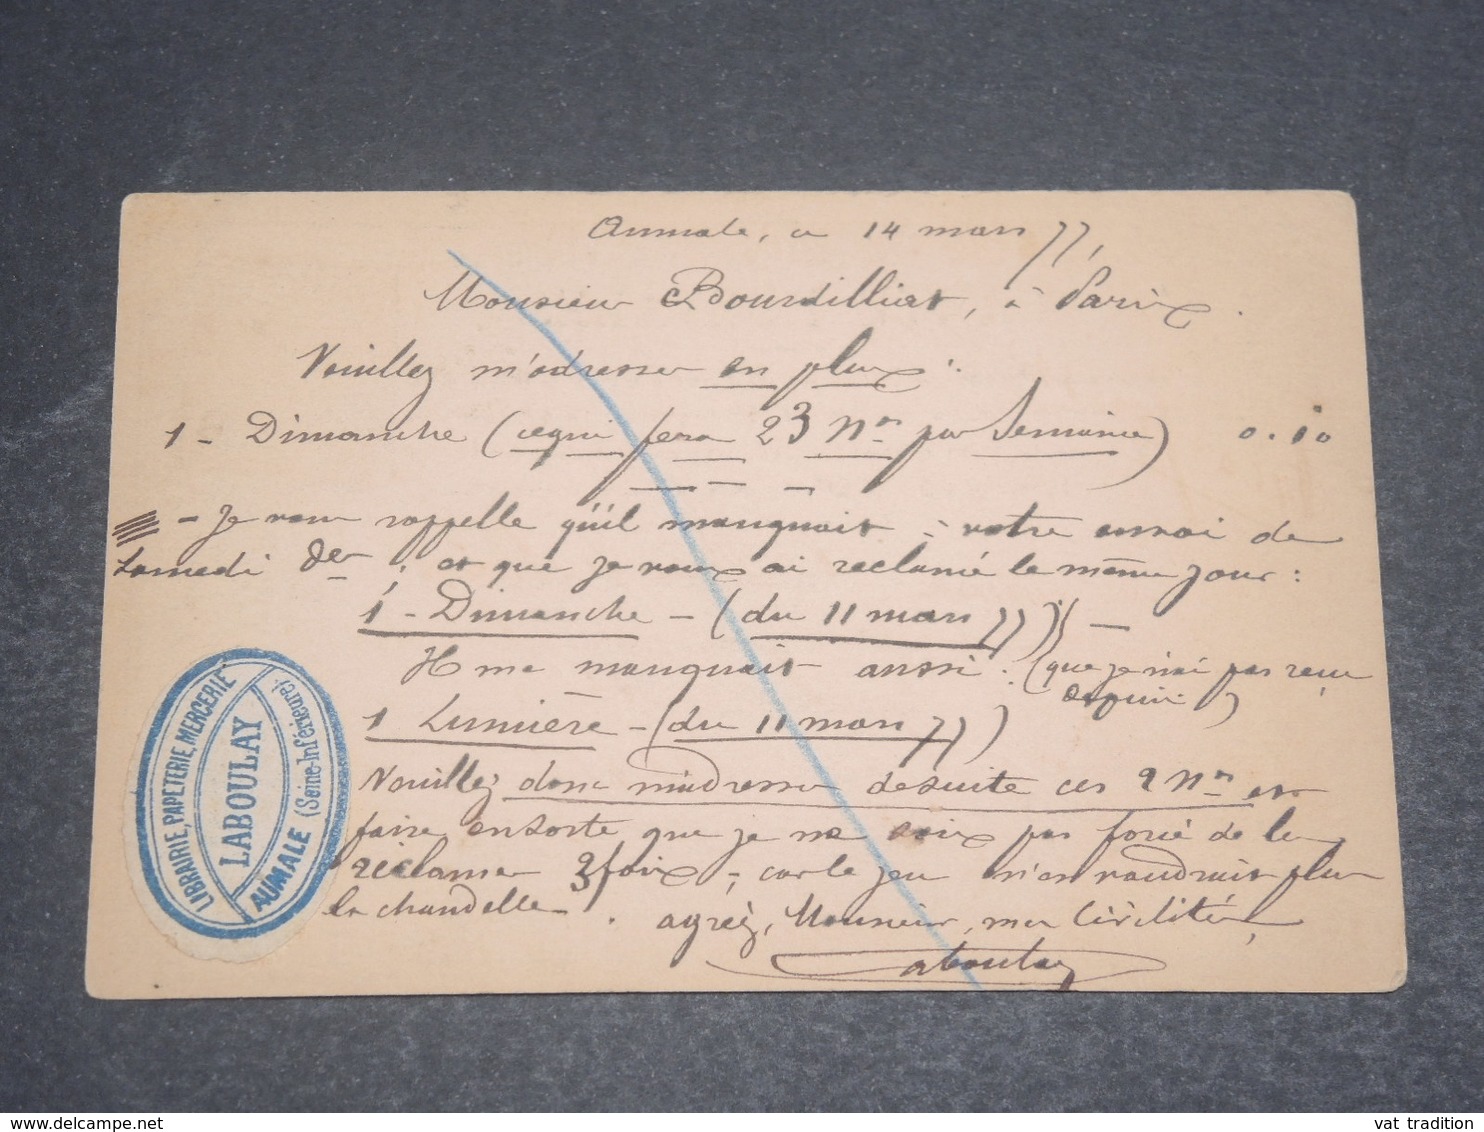 Aumale, le 14 mars 77,
Monsieur Bourdilliat, à Paris.
Veuillez m'adresser en plus :
1 - Dimanche (ce qui fera 23 Nos par Semaine) 0.10
- Je vous rappelle qu'il manquait à votre envoi de
Samedi der, et que je vous ai réclamé le même jour :
1 - Dimanche - (du 11 mars 77) -
Il me manquait aussi : (que je n'ai pas reçu
depuis)
1 Lumière - (du 11 mars 77)
Veuillez donc m'adresser desuite ces 2 Nos et
faire ensorte que je ne sois pas forcé de les
réclamer 3 fois, car le jeu n'en vaudrait plus
la chandelle.
agréez, Monsieur, mes Civilités,
Laboulay
LIBRAIRIE, PAPETERIE, MERCERIE
LABOULAY
AUMALE (Seine-Inférieure).
delcampe.net
vat tradition